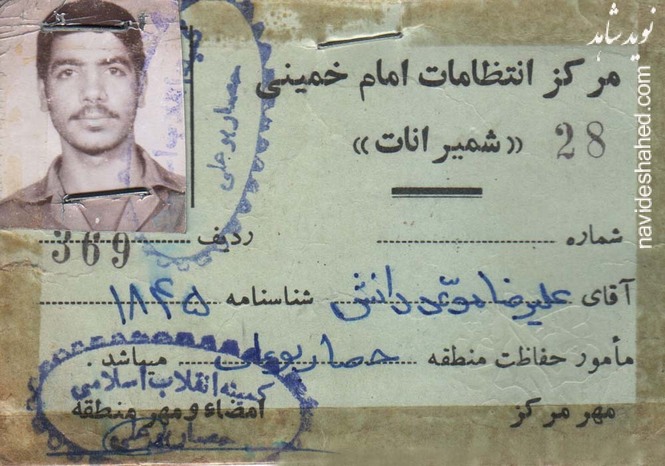 نوید شاهد
navideshahed.com
مرکز انتظامات امام خمینی
«شمیرانات» 28
شماره ردیف 369
آقای علیرضا موحد دانش شناسنامه ۱۸۴۵
مأمور حفاظت منطقه حصار بوعلی میباشد.
مهر مرکز امضاء و مهر منطقه
کمیته انقلاب اسلامی
حصار بوعلی
حصار بوعلی